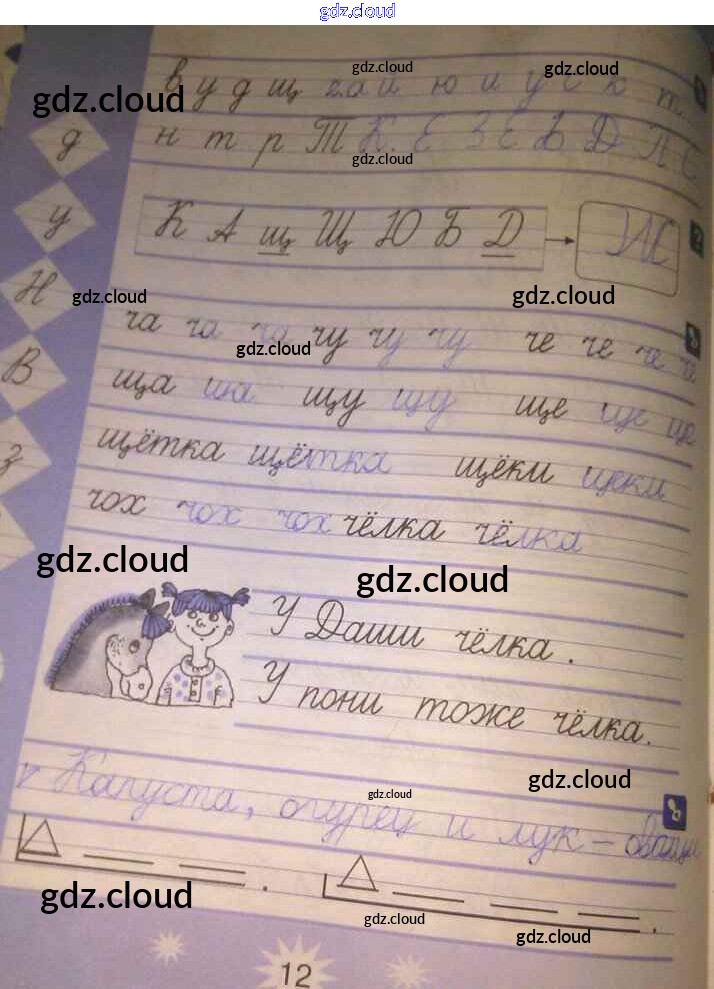 gdz.cloud
в у д щ е а й ю и у с к т
gdz.cloud
gdz.cloud
gdz.cloud
д
н т р Т К Е З Е Б Д Л С
gdz.cloud
у
К А щ Щ Ю Б Д Ж
2
Н
gdz.cloud
gdz.cloud
ча ча ча чу чу чу че че че че
gdz.cloud
В
ща ща щу щу ще ще ще
щётка щётка щёки щеки
з
чох чох чох чёлка чёлка
gdz.cloud
gdz.cloud
У Даши чёлка.
У пони тоже чёлка.
gdz.cloud
gdz.cloud
Капуста, огурец и лук – овощи
gdz.cloud
gdz.cloud
gdz.cloud
12